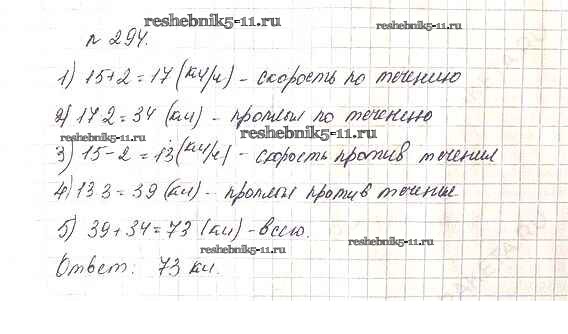 reshebnik5-11.ru
n 294.
1) 15+2=17 (км/ч) - скорость по течению
2) 17 2=34 (км) - проплыл по течению
reshebnik5-11.ru reshebnik5-11.ru
3) 15-2=13 (км/ч) - скорость против течения
4) 13 3=39 (км) - проплыл против течение
5) 39+34=73 (км) - всего.
reshebnik5-11.ru reshebnik5-11.ru
Ответ: 73 км.